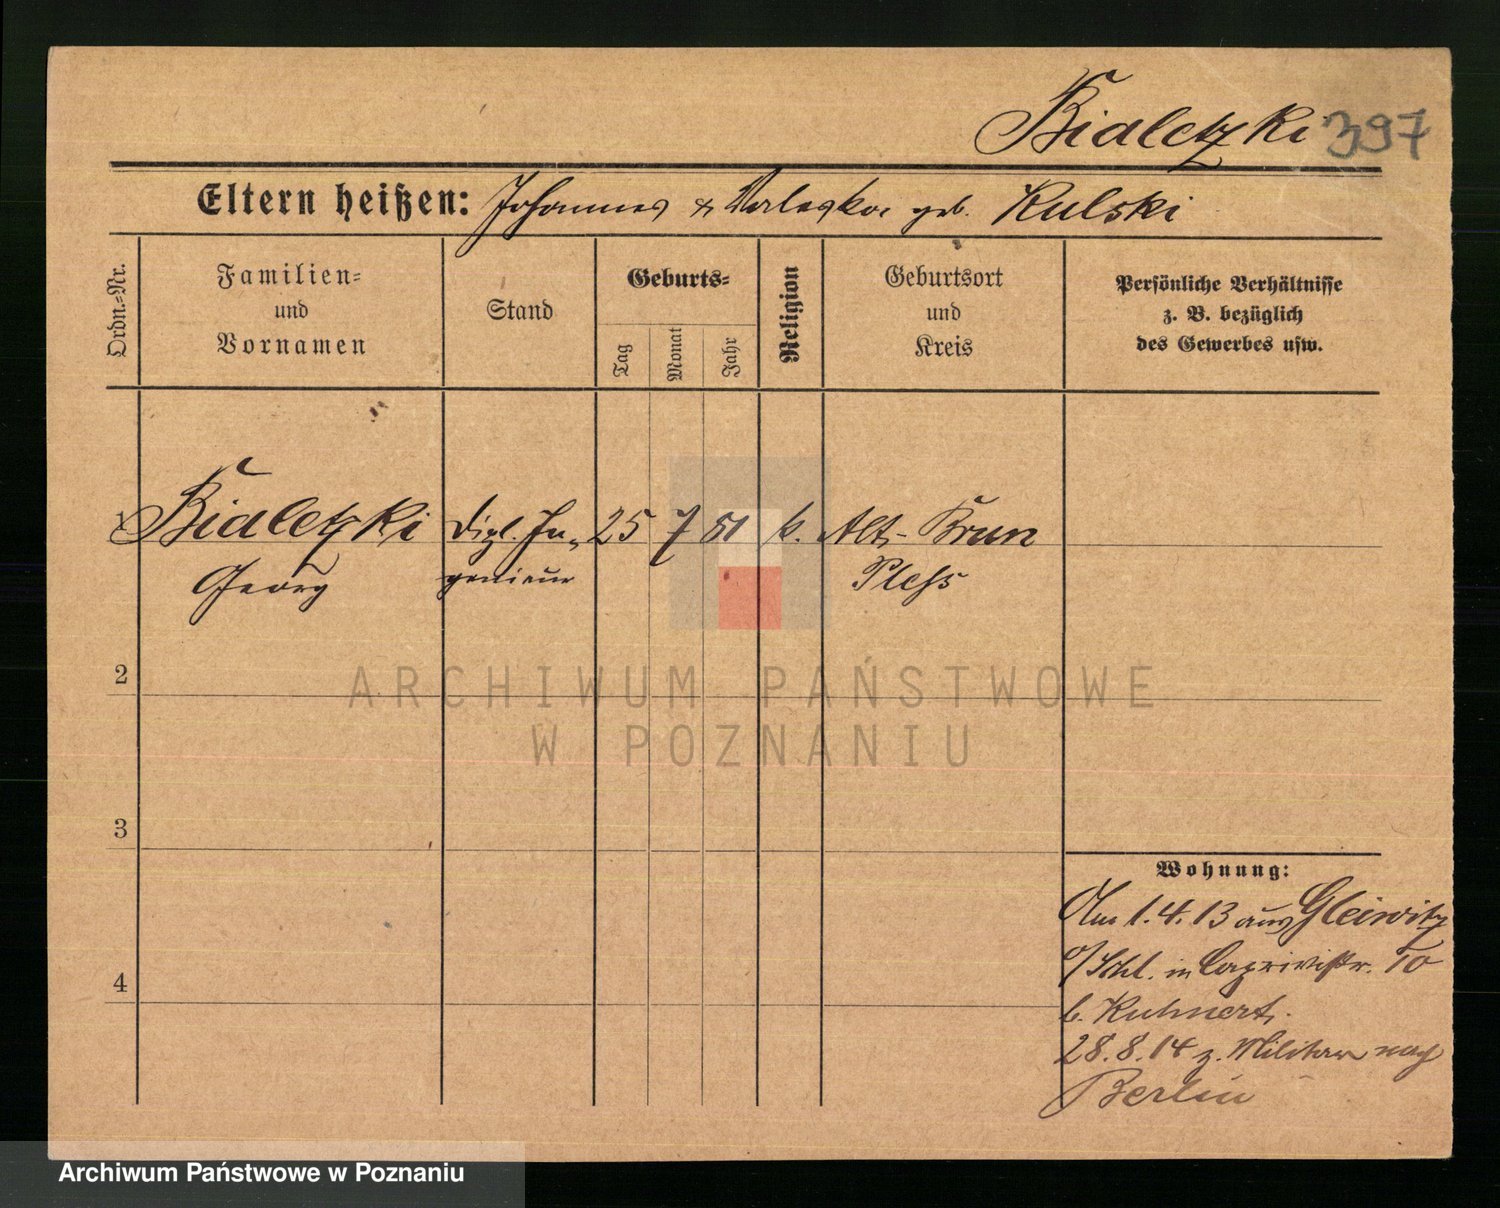 Bialetzki 397
Eltern heißen: Johannes & Valeska geb. Kulski
Ordn.-Nr.
Familien- und Vornamen
Stand
Geburts-
Tag
Monat
Jahr
Religion
Geburtsort und Kreis
Persönliche Verhältnisse
z. B. bezüglich
des Gewerbes usw.
1 Bialetzki Dipl. In- 25 7 81 k. Alt-Krun
Georg genieur Pless
ARCHIWUM PAŃSTWOWE
W POZNANIU
2
3
4
Wohnung:
Am 1.4.13 aus Gleiwitz
o/Schl. in Caprivistr. 10
b. Kuhnert.
28.8.14 z. Militär nach
Berlin
Archiwum Państwowe w Poznaniu